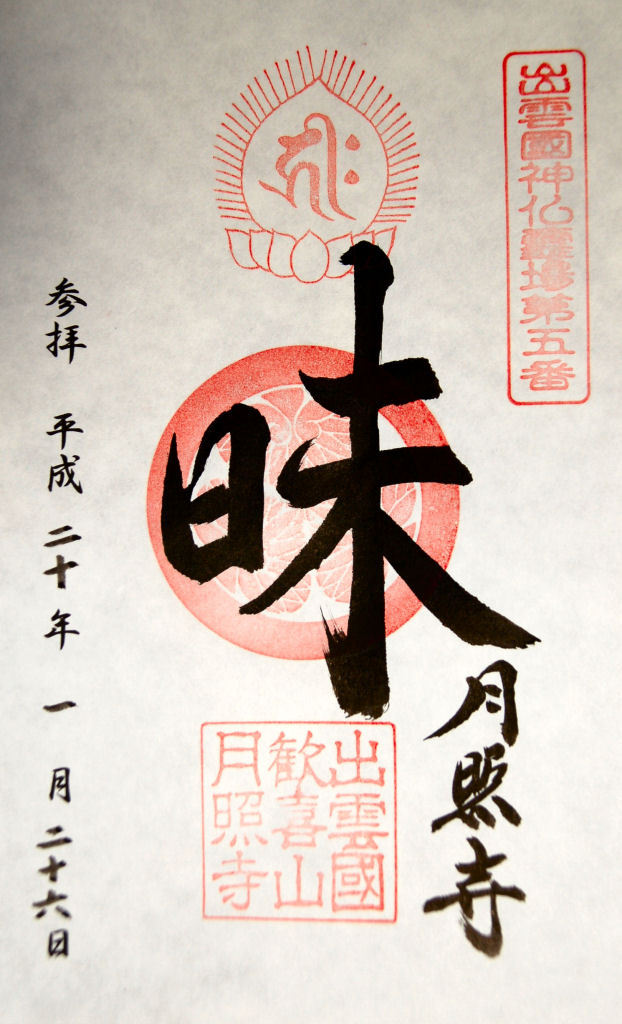 出雲國神仏靈場第五番
𑖮𑖿𑖨𑖱𑖾
昧
月照寺
出雲國
歓喜山
月照寺
参拝 平成二十年 一月二十六日